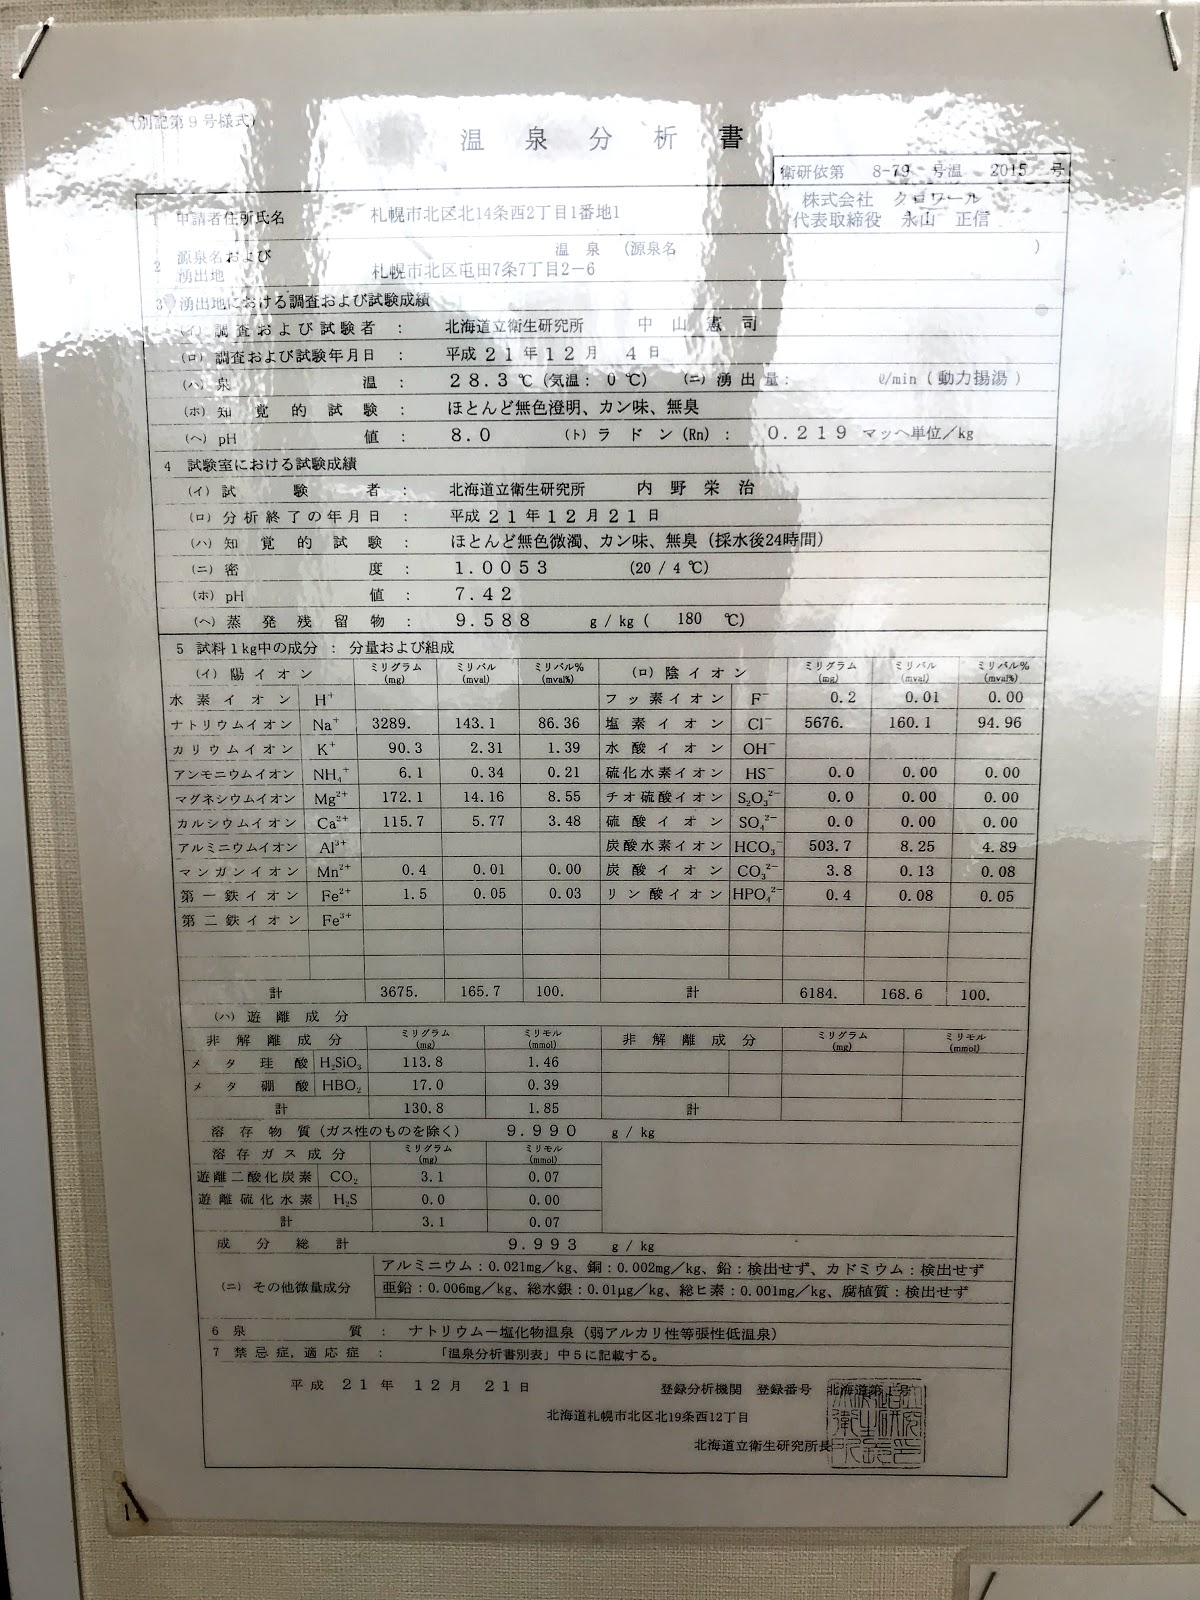 (別記第9号様式)
温泉分析書
衛研依第 8-79 号温 2015 号
1 申請者住所氏名 札幌市北区北14条西2丁目1番地1 株式会社 クロワール
代表取締役 永山 正信
2 源泉名および湧出地 温泉 (源泉名 )
札幌市北区屯田7条7丁目2-6
3 湧出地における調査および試験成績
(イ) 調査および試験者 : 北海道立衛生研究所 中山憲司
(ロ) 調査および試験年月日 : 平成21年12月 4日
(ハ) 泉温 : 28.3℃ (気温: 0℃) (ニ) 湧出量: ℓ/min (動力揚湯)
(ホ) 知覚的試験 : ほとんど無色澄明、カン味、無臭
(ヘ) pH値 : 8.0 (ト) ラドン(Rn) : 0.219 マッヘ単位/kg
4 試験室における試験成績
(イ) 試験者 : 北海道立衛生研究所 内野栄治
(ロ) 分析終了の年月日 : 平成21年12月21日
(ハ) 知覚的試験 : ほとんど無色微濁、カン味、無臭 (採水後24時間)
(ニ) 密度 : 1.0053 (20/4℃)
(ホ) pH値 : 7.42
(ヘ) 蒸発残留物 : 9.588 g/kg ( 180 ℃)
5 試料1kg中の成分 : 分量および組成
(イ) 陽イオン ミリグラム(mg) ミリバル(mval) ミリバル%(mval%) (ロ) 陰イオン ミリグラム(mg) ミリバル(mval) ミリバル%(mval%)
水素イオン H⁺ フッ素イオン F⁻ 0.2 0.01 0.00
ナトリウムイオン Na⁺ 3289. 143.1 86.36 塩素イオン Cl⁻ 5676. 160.1 94.96
カリウムイオン K⁺ 90.3 2.31 1.39 水酸イオン OH⁻
アンモニウムイオン NH₄⁺ 6.1 0.34 0.21 硫化水素イオン HS⁻ 0.0 0.00 0.00
マグネシウムイオン Mg²⁺ 172.1 14.16 8.55 チオ硫酸イオン S₂O₃²⁻ 0.0 0.00 0.00
カルシウムイオン Ca²⁺ 115.7 5.77 3.48 硫酸イオン SO₄²⁻ 0.0 0.00 0.00
アルミニウムイオン Al³⁺ 炭酸水素イオン HCO₃⁻ 503.7 8.25 4.89
マンガンイオン Mn²⁺ 0.4 0.01 0.00 炭酸イオン CO₃²⁻ 3.8 0.13 0.08
第一鉄イオン Fe²⁺ 1.5 0.05 0.03 リン酸イオン HPO₄²⁻ 0.4 0.08 0.05
第二鉄イオン Fe³⁺
計 3675. 165.7 100. 計 6184. 168.6 100.
(ハ) 遊離成分
非解離成分 ミリグラム(mg) ミリモル(mmol) 非解離成分 ミリグラム(mg) ミリモル(mmol)
メタ珪酸 H₂SiO₃ 113.8 1.46
メタ硼酸 HBO₂ 17.0 0.39
計 130.8 1.85 計
溶存物質(ガス性のものを除く) 9.990 g/kg
溶存ガス成分 ミリグラム(mg) ミリモル(mmol)
遊離二酸化炭素 CO₂ 3.1 0.07
遊離硫化水素 H₂S 0.0 0.00
計 3.1 0.07
成分総計 9.993 g/kg
(ニ) その他微量成分 アルミニウム:0.021mg/kg、銅:0.002mg/kg、鉛:検出せず、カドミウム:検出せず
亜鉛:0.006mg/kg、総水銀:0.01μg/kg、総ヒ素:0.001mg/kg、腐植質:検出せず
6 泉質 : ナトリウム-塩化物温泉 (弱アルカリ性等張性低温泉)
7 禁忌症,適応症 : 「温泉分析書別表」中5に記載する。
平成 21年 12月 21日 登録分析機関 登録番号 北海道第1号
北海道札幌市北区北19条西12丁目
北海道立衛生研究所長